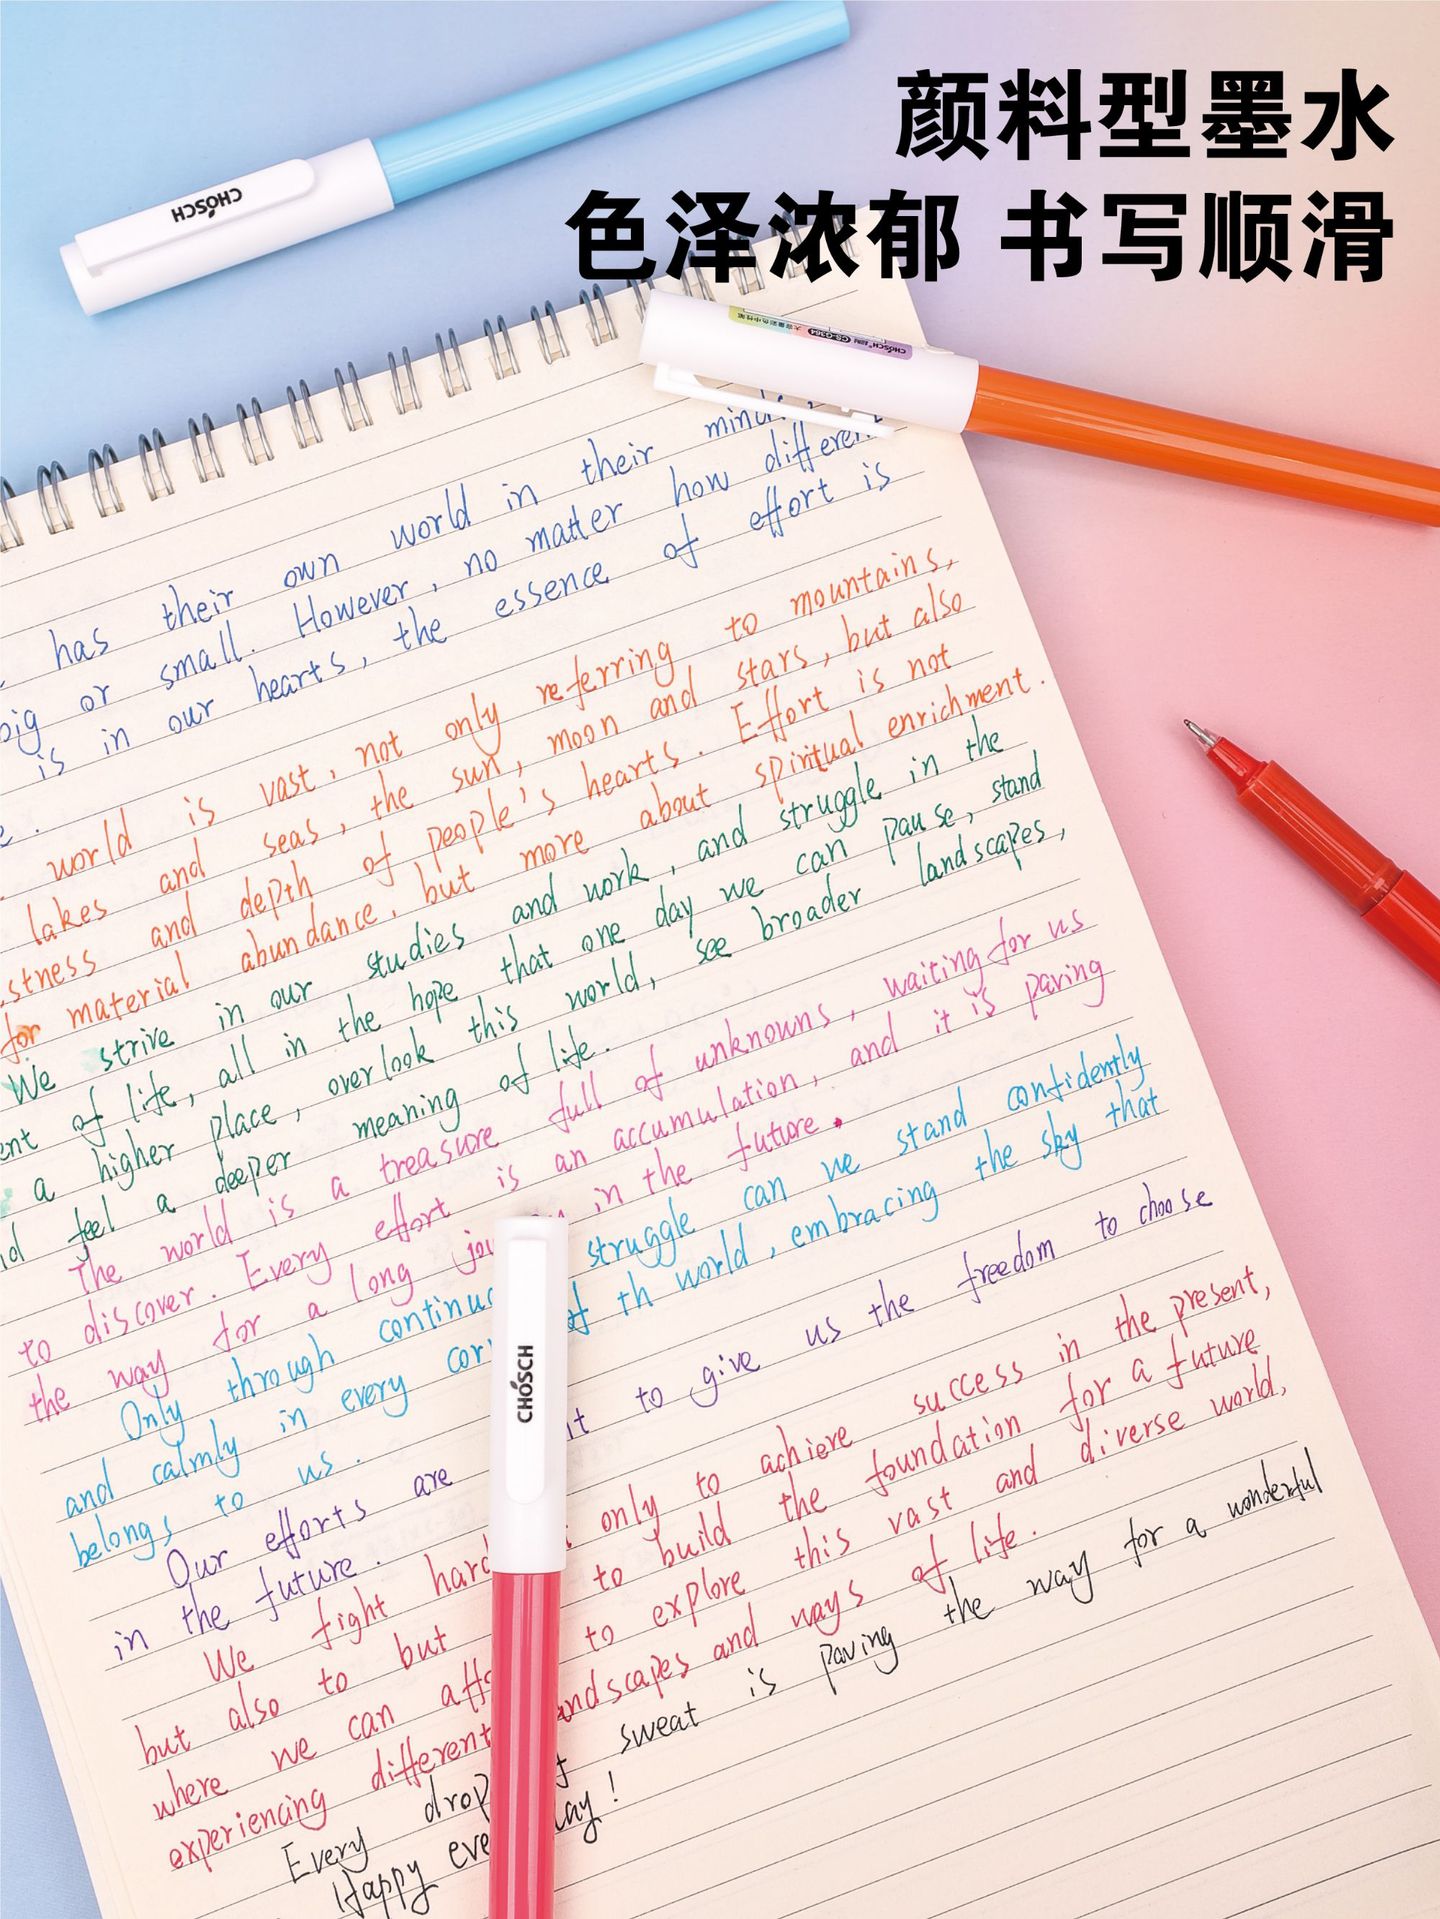 颜料型墨水
色泽浓郁 书写顺滑
CHOSCH
CHOSCH CS-G364 大容量彩色中性笔
has their own world in their
big or small. However, no matter how different
is in our hearts, the essence of effort is
world is vast, not only referring to mountains,
lakes and seas, the sun, moon and stars, but also
and depth of people's hearts. Effort is not
for material abundance, but more about spiritual enrichment.
We strive in our studies and work, and struggle in the
of life, all in the hope that one day we can pause, stand
a higher place, overlook this world, see broader landscapes,
feel a deeper meaning of life.
The world is a treasure full of unknowns, waiting for us
to discover. Every effort is an accumulation, and it is paving
the way for a long in the future.
Only through struggle can we stand confidently
and calmly in every of th world, embracing the sky that
belongs to us.
Our efforts are to give us the freedom to choose
in the future.
We fight only to achieve success in the present,
but also to but to build the foundation for a future
where we can to explore this vast and diverse world,
experiencing different and ways of life.
Every sweat is paving the way for a wonderful
Happy
CHOSCH